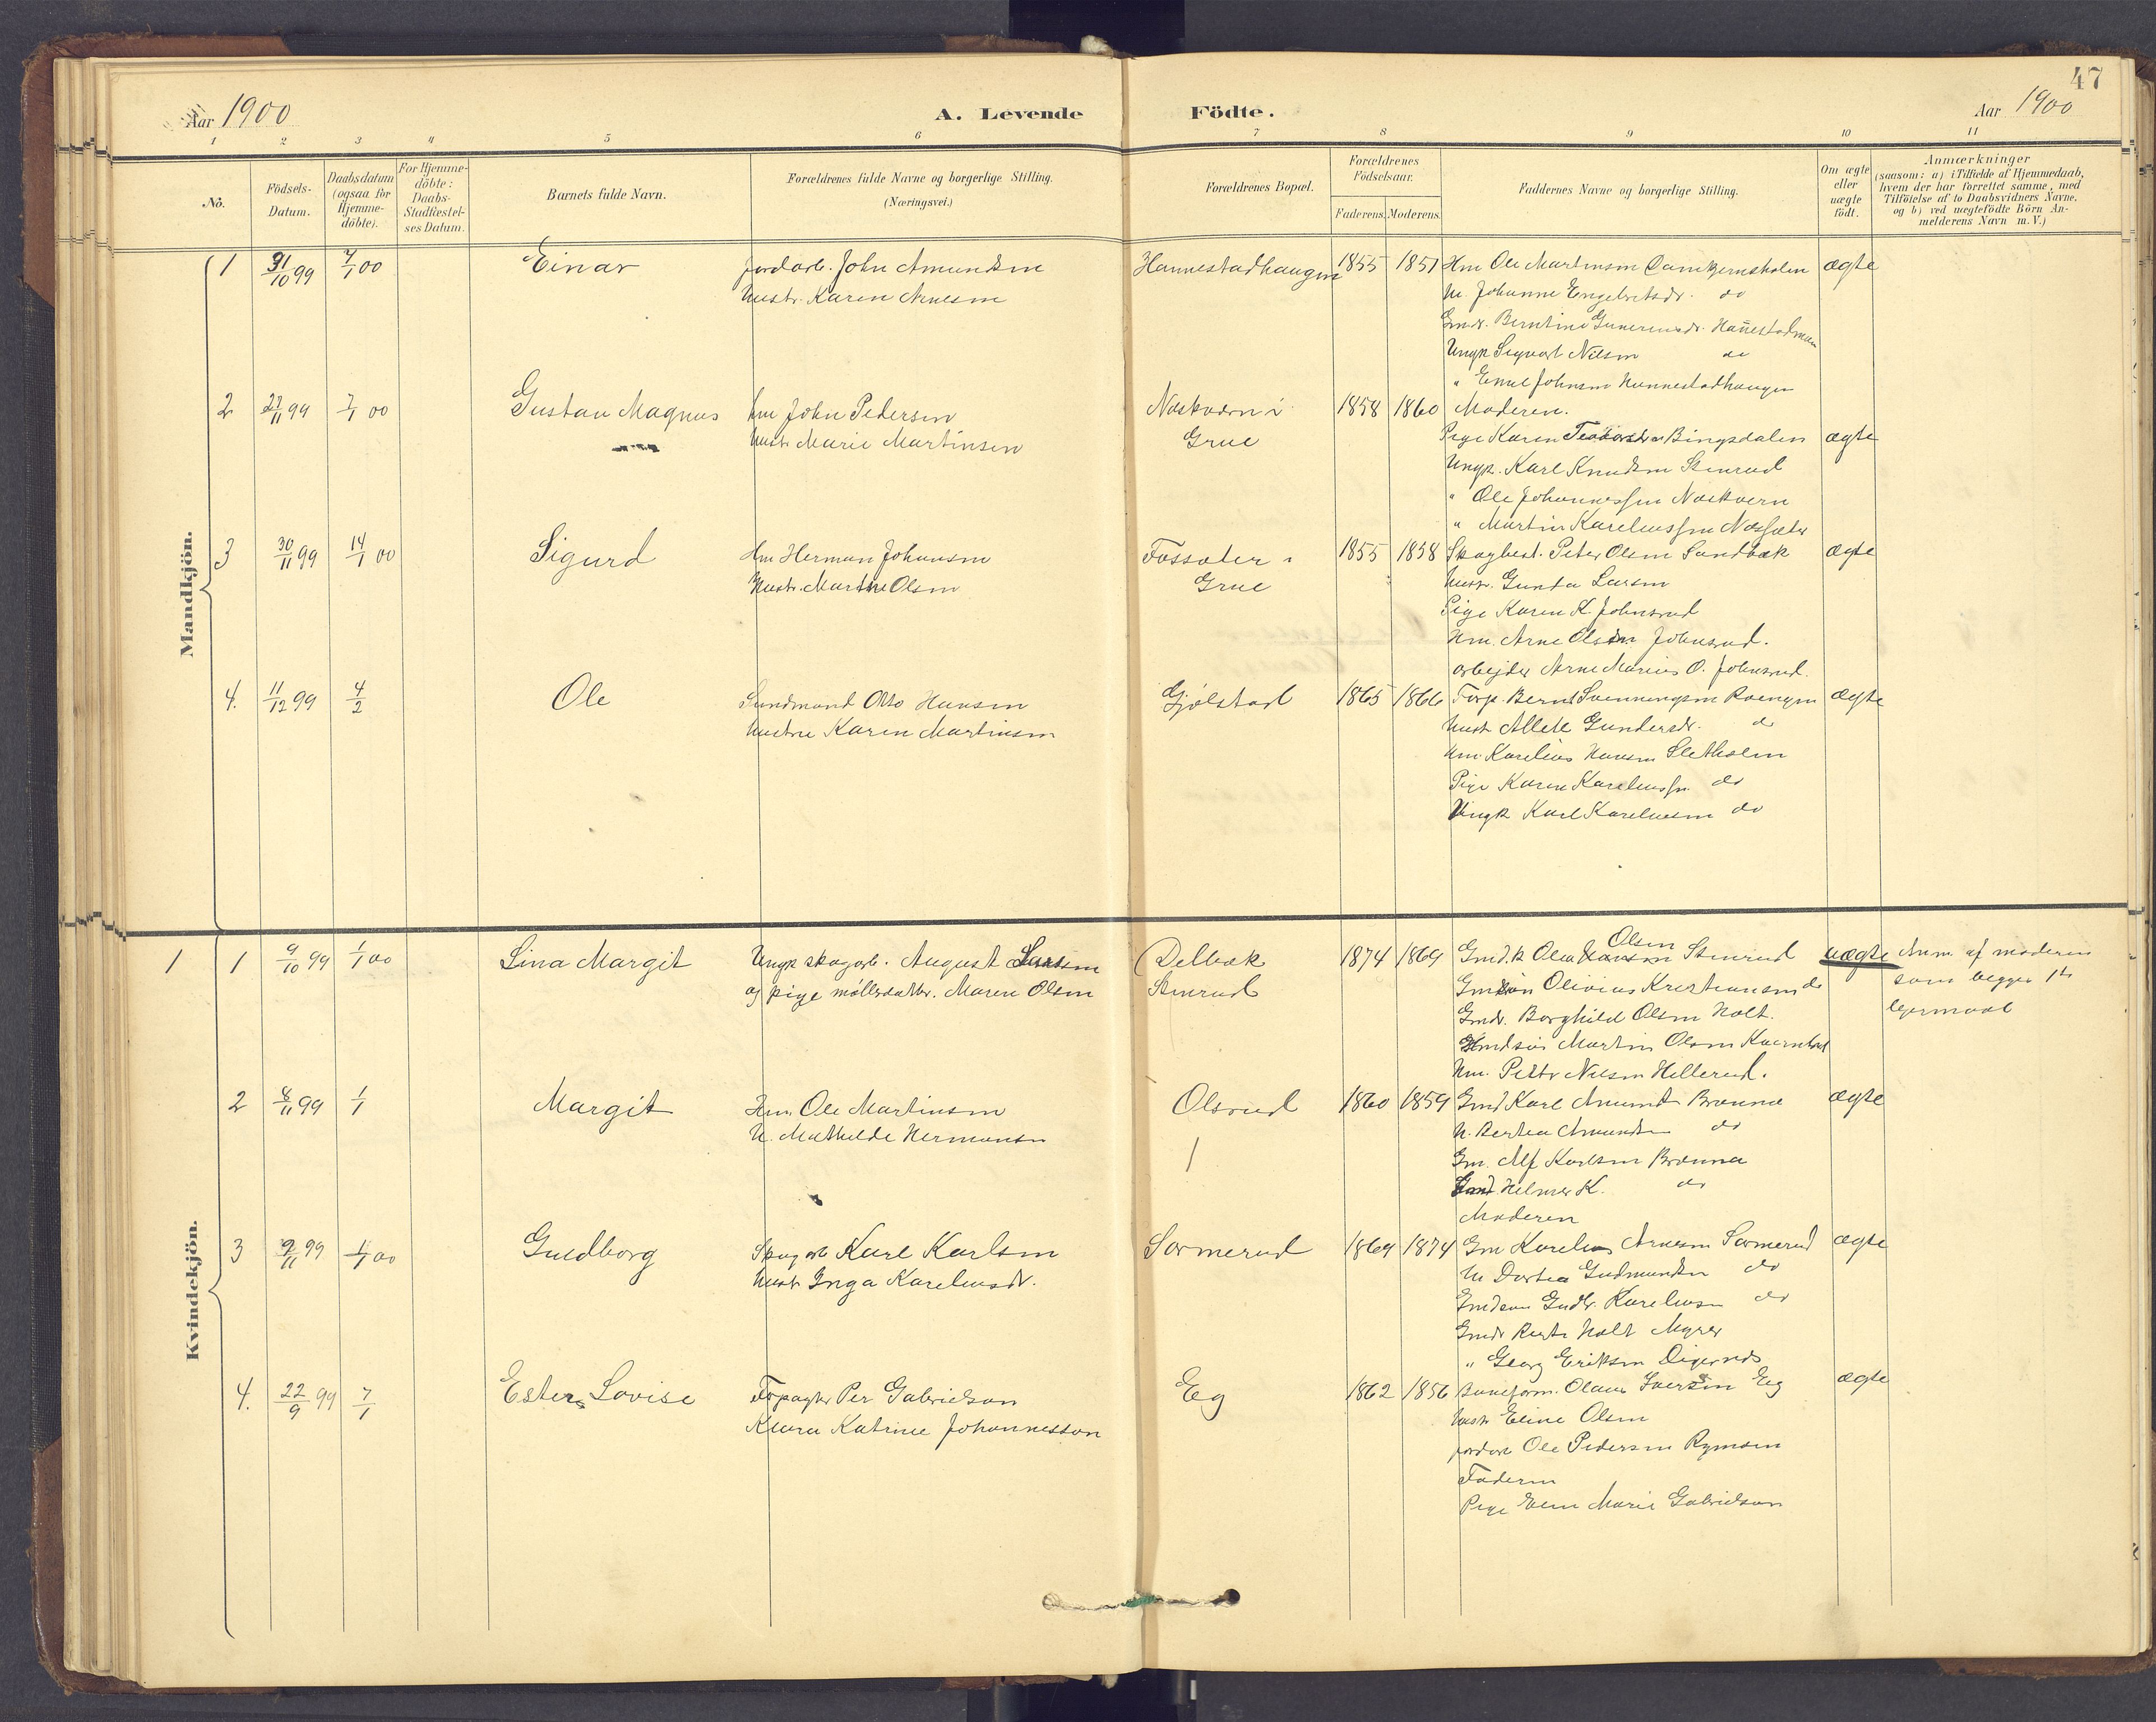 47
Aar 1900
A. Levende Födte.
Aar 1900
1 2 3 4 5 6 7 8 9 10 11
No.
Födsels-Datum.
Daabsdatum (ogsaa for Hjemme-döbte).
For Hjemme-döbte: Daabs-Stadfæstel-ses Datum.
Barnets fulde Navn.
Forældrenes fulde Navne og borgerlige Stilling.
(Næringsvei.)
Forældrenes Bopæl.
Forældrenes Födselsaar.
Faderens. Moderens.
Faddernes Navne og borgerlige Stilling.
Om ægte eller uægte födt.
Anmærkninger
(saasom: a) i Tilfælde af Hjemmedaab,
hvem der har forrettet samme, med
Tilföielse af to Daabsvidners Navne,
og b) ved uægtefödte Börn An-
melderens Navn m. V.)
Mandkjön.
1 31/10 99 7/1 00 Einar Jordarb. John Amundsen Hannestadhaugen 1855 1851 Hm Ole Martinsen ægte
Hustr. Karen Arnesen
H. Johanne Engebretsdr. do
Gmdr. Berntine
Ungk Sigvart Nilsen do
" Emil Johnsen Hannestadhaugen
2 27/11 99 7/1 00 Gustav Magnus Hm John Pedersen Næskværn i 1858 1860 Moderen.
Hustr Marie Martinsen Grue
Pige Karen Bingsdalen ægte
Ungk. Karl Knudsen Stenrud
" Ole Johannessen Næskvern
" Martin Kareliussen Næssæter
3 30/11 99 14/1 00 Sigurd Hm Herman Johansen Fossæter i 1855 1858 Skogbest. Peter Olsen Sandbæk ægte
Hustr. Marthe Olsen Grue
Hustr. Gunda Larsen
Pige Karen K. Johnsrud
Hm. Arne Olsen Johnsrud.
arbejder Arne Marius O. Johnsrud.
4. 11/12 99 4/2 Ole Sandmand Otto Hansen Gjølstad 1865 1866 Forp. Bernt Svenningsen Roengen ægte
Hustru Karen Martinsen
Hustr Allette Gundersdr. do
Hm. Karelius Hansen Sletholen
Pige Karen Kareliussen do
Ungk Karl Kareliussen do
Kvindekjön.
1 1 9/10 99 1/1 00 Lina Margit Ungk skogarb. August Larsen Delbæk 1874 1869 Gmd.k Olea Olsen Stenrud uægte Anm. af moderen
og pige møllerdatter. Maren Olsen Stenrud
som begges 1ste
leiermaal
Gmdsøn Olivius Kristiansen do
Gmdr. Borghild Olsen Holt.
Gmdsøn Martin Olsen
Hm. Petter Nilsen Hellerud.
2 8/11 99 1/1 Margit Hm. Ole Martinsen Olsrud 1860 1859 Gmd Karl Amunds Brænna ægte
H. Mathilde Hermansen
H. Berthea Amundsen do
Gm. Alf Karlsen Brænna
Gmd Helmer K. do
Moderen
3 9/11 99 1/1 00 Guldborg Skogarb Karl Karlsen Sormerud 1869 1874 Gm Karelius Arnesen Sormerud ægte
Hustr Inga Kareliusdr.
H Dortea Gudmundsen do
Gmdsøn Gudbr. Kareliusen do
Gmdr Holt Myrer
" Georg Eriksen Digerud
4. 22/9 99 7/1 Ester Lovise Forpagter Per Gabrielson Eg 1862 1856 Baneform. Olaus Iversen Eg ægte
Klara Katrine Johannesson
Hustr Eline Olsen
Jordarb Ole Pedersen Rymoen
Faderen
Pige Elen Marie Gabrielson